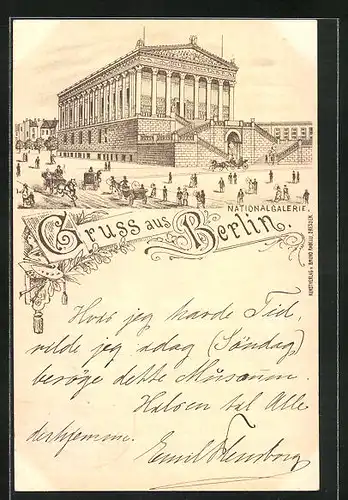 NATIONALGALERIE.
Gruss aus Berlin.
KUNSTVERLAG v. BRUNO
DRESDEN
Hvis jeg havde Tid,
vilde jeg idag (Søndag)
besøge dette Musæum.
Hilsen til Alle
derhjemme.
Emil Flensborg